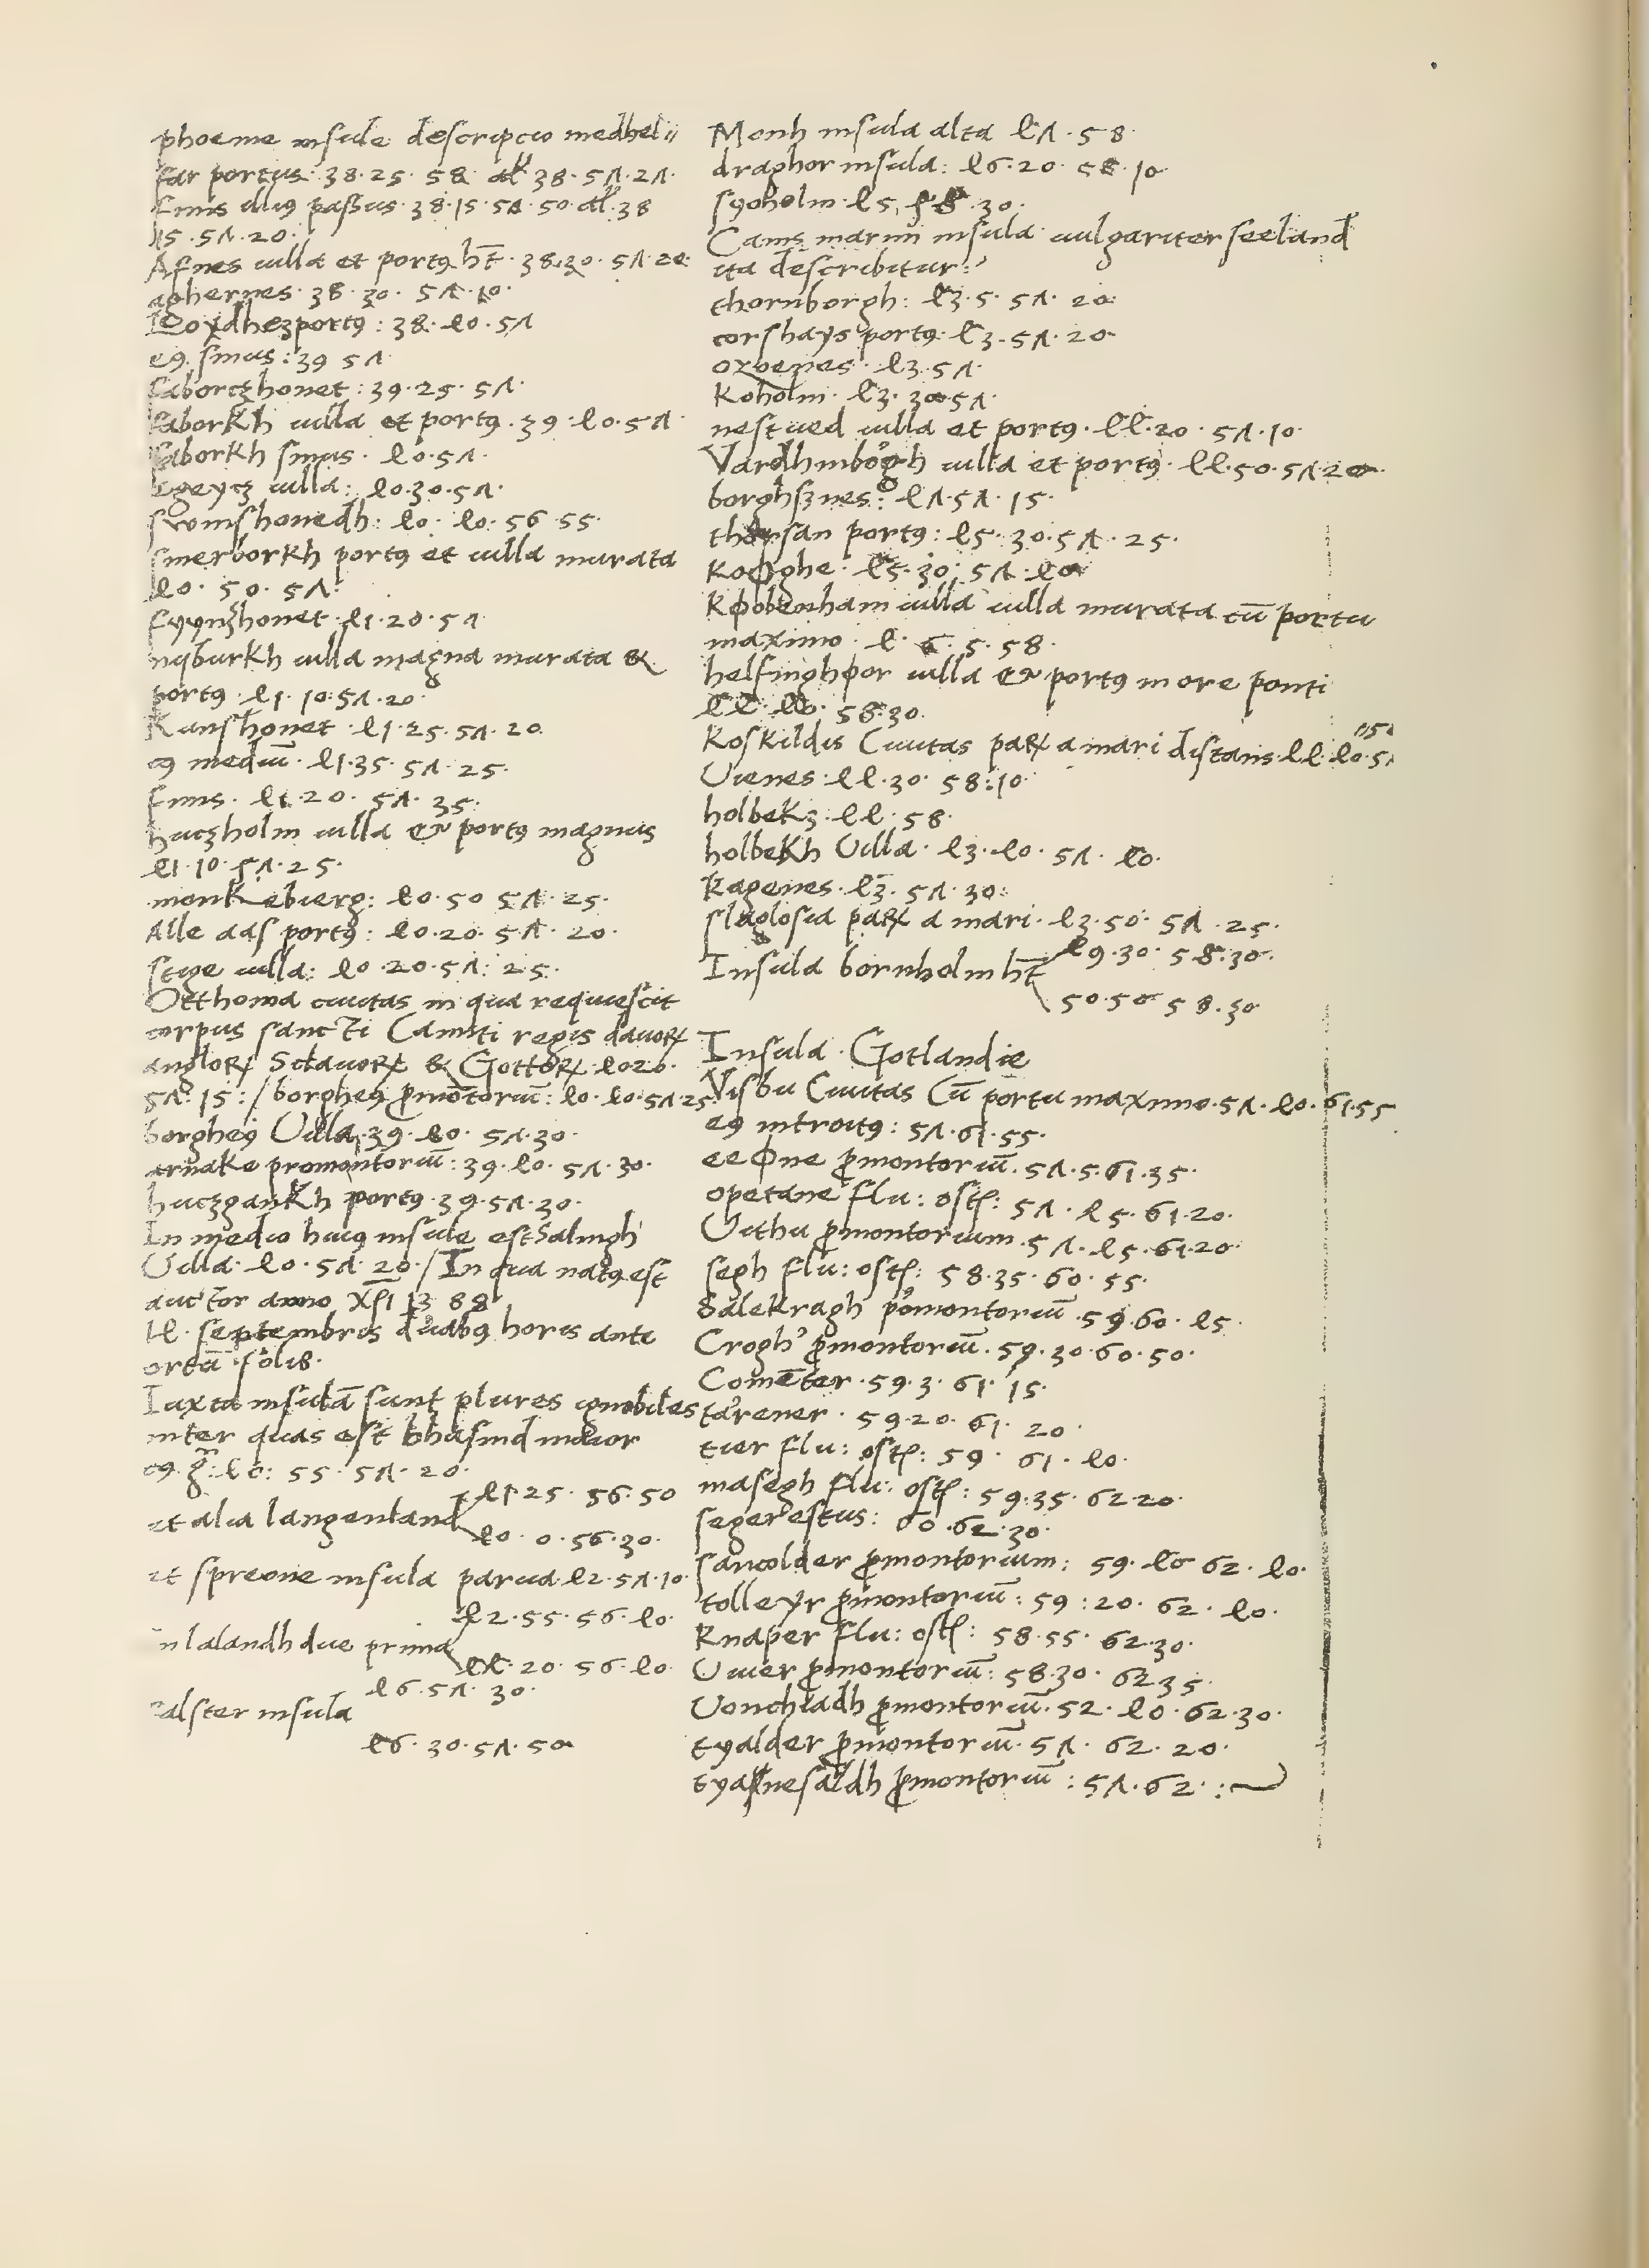 phoeme insule descripcio medhel//
far portus: 38·25· 58· al' 38·57·27·
finis illius passus 38·15·57·50·al'·38
15·57·20·
Afnes uilla et portꝰ ht̄·38·30·57·20·
aghernes·38·30·57·10·
portꝰ: 38·40·57
eꝰ sinus: 39 57
faborczhonet: 39·25·57·
faborkh uilla et portꝰ·39·40·57
faborkh sinus·40·57·
uilla: 40·30·57·
swinshouedh: 40·40·56·55·
smerborkh portꝰ et uilla murata
40·50·57·
fyynzhonet·41·20·57
nyburkh uilla magna murata &
portꝰ·41·10:57·20·
kunshonet·41·25·57·20
eꝰ mediū·41·35·57·25·
finis·41·20·57·35:
huczholm uilla et portꝰ magnus
41·10·57·25·
monkebierg: 40·50 57·25·
Alle aas portꝰ: 40·20·57·20·
stige uilla: 40·20·57: 25·
Otthoma ciuitas in qua requiescit
corpus sancti Canuti regis dauoꝝ
angloꝝ Sclauoꝝ & Gottoꝝ·4020·
57·15:/borgheꝰ ꝓmōtoriū: 40·40·57·25·
borgheꝰ Uilla·39·40·57·30·
arnake promontoriū: 39·40·57·30·
huczgankh portꝰ·39·57·30·
In medio huiꝰ insule est Salingh
Uilla·40·57·20·/In qua natꝰ est
auctor anno xp̄i 1388
14·septembris duabꝰ horis ante
ortū solis·
Iuxta insulā sunt plures ignobiles
inter quas est thasind maior
55·57·20·
41·25·56·50
et alia langenland
40·0·56·30·
et spreone insula parua 42·57·10·
42·55·56·40·
In lalandh due prima
44·20·56·40·
46·57·30·
falster insula
46·30·57·50
Monh insula alta 47·58·
draghor insula: 46·20·58·10
syoholm·45·58·30·
Canis marini insula uulgariter seeland
ita describitur:
thornborgh: 43·5·57·20:
corshays portꝰ·43·57·20·
oxoenes·43·57·
koholm·43·30·57·
nestued uilla et portꝰ·44·20·57·10·
Vardhinbo'gh uilla et portꝰ·44·50·57·20·
borghsznes: 47·57·15·
portꝰ: 45·30·57·25·
koøghe·45·30:57·40
køobenham uilla uilla murata cū portu
maximo·4·6·5·58·
helsinghør uilla et portꝰ more ponti
44·40·58·30·
Roskildis Ciuitas paꝝ a mari distans·44·40·57
Uienes·44·30·58:10·
holbekz·44·58·
holbekh Uilla·43·40·57·40·
Ragenes·43·57·30:
slaglosia paꝝ a mari·43·50·57·25·
49·30·58·30·
Insula bornholm ht̄
50·50 58·30
Insula Gotlandie
Visbu Ciuitas Cū portu maximo·57·40·61·55
eꝰ introitꝰ: 57·61·55·
eeøne ꝓmontoriū·57·5·61·35·
opetane flu: ost': 57·45·61·20·
Uithu ꝓmontorium·57·45·61·20·
segh flu: ost': 58·35·60·55·
Salekragh ꝓmontoriū·59·60·45·
Crogh' ꝓmontoriū·59·30·60·50·
Comēter·59·3·61·15·
ta'rener·59·20·61·20·
tier flu: ost': 59·61·40·
masegh flu: ost': 59·35·62·20·
segerestus: 60·62·30·
sancolder ꝓmontorium: 59·40 62·40·
tolleyr ꝓmontoriū: 59:20·62·40·
knaper flu: ost': 58·55·62·30·
Uiuer ꝓmontoriū: 58·30·62 35·
Uonchladh ꝓmontoriū·52·40·62·30·
tyalder ꝓmontoriū·57·62·20·
ꝓmontoriū: 57·62·: